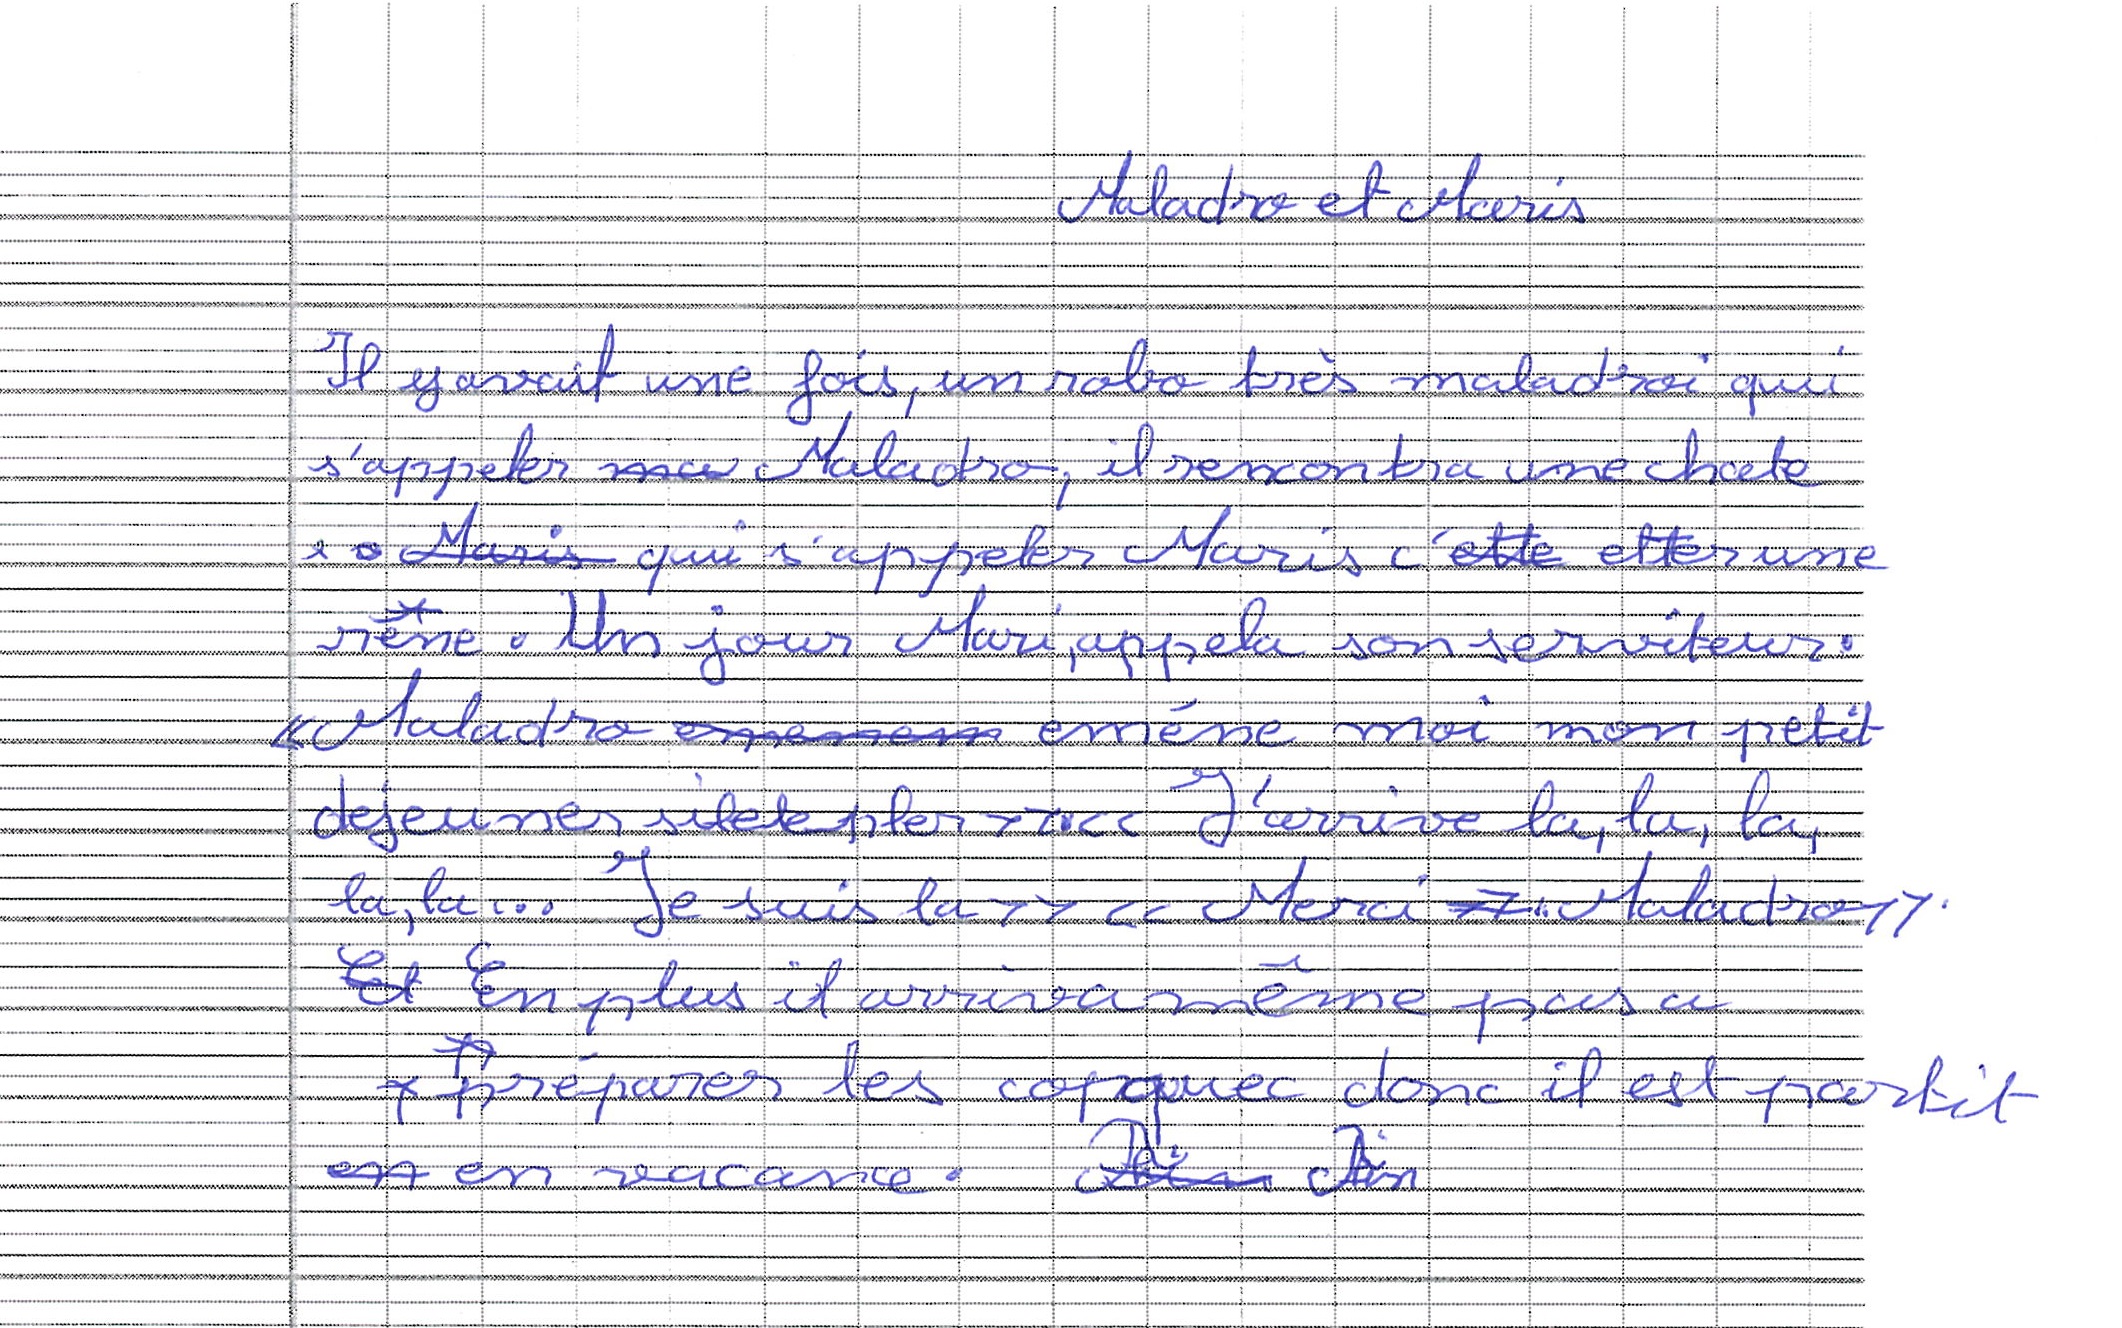 Maladro et Maris
Il y avait une fois, un robo très maladroi qui
s'appeler ma Maladro, il rencontra une chate
Maris qui s'appeler Maris c'ette etter une
rène. Un jour Mari, appela son serviteur :
«Maladro emméne moi mon petit
dejeuner sitetepler >> << J'arrive la, la, la,
la, la... Je suis la >> << Merci Maladro >>.
Et En plus il arriva même pas a
préparer les copquec donc il est partit
en en vacance. Fin